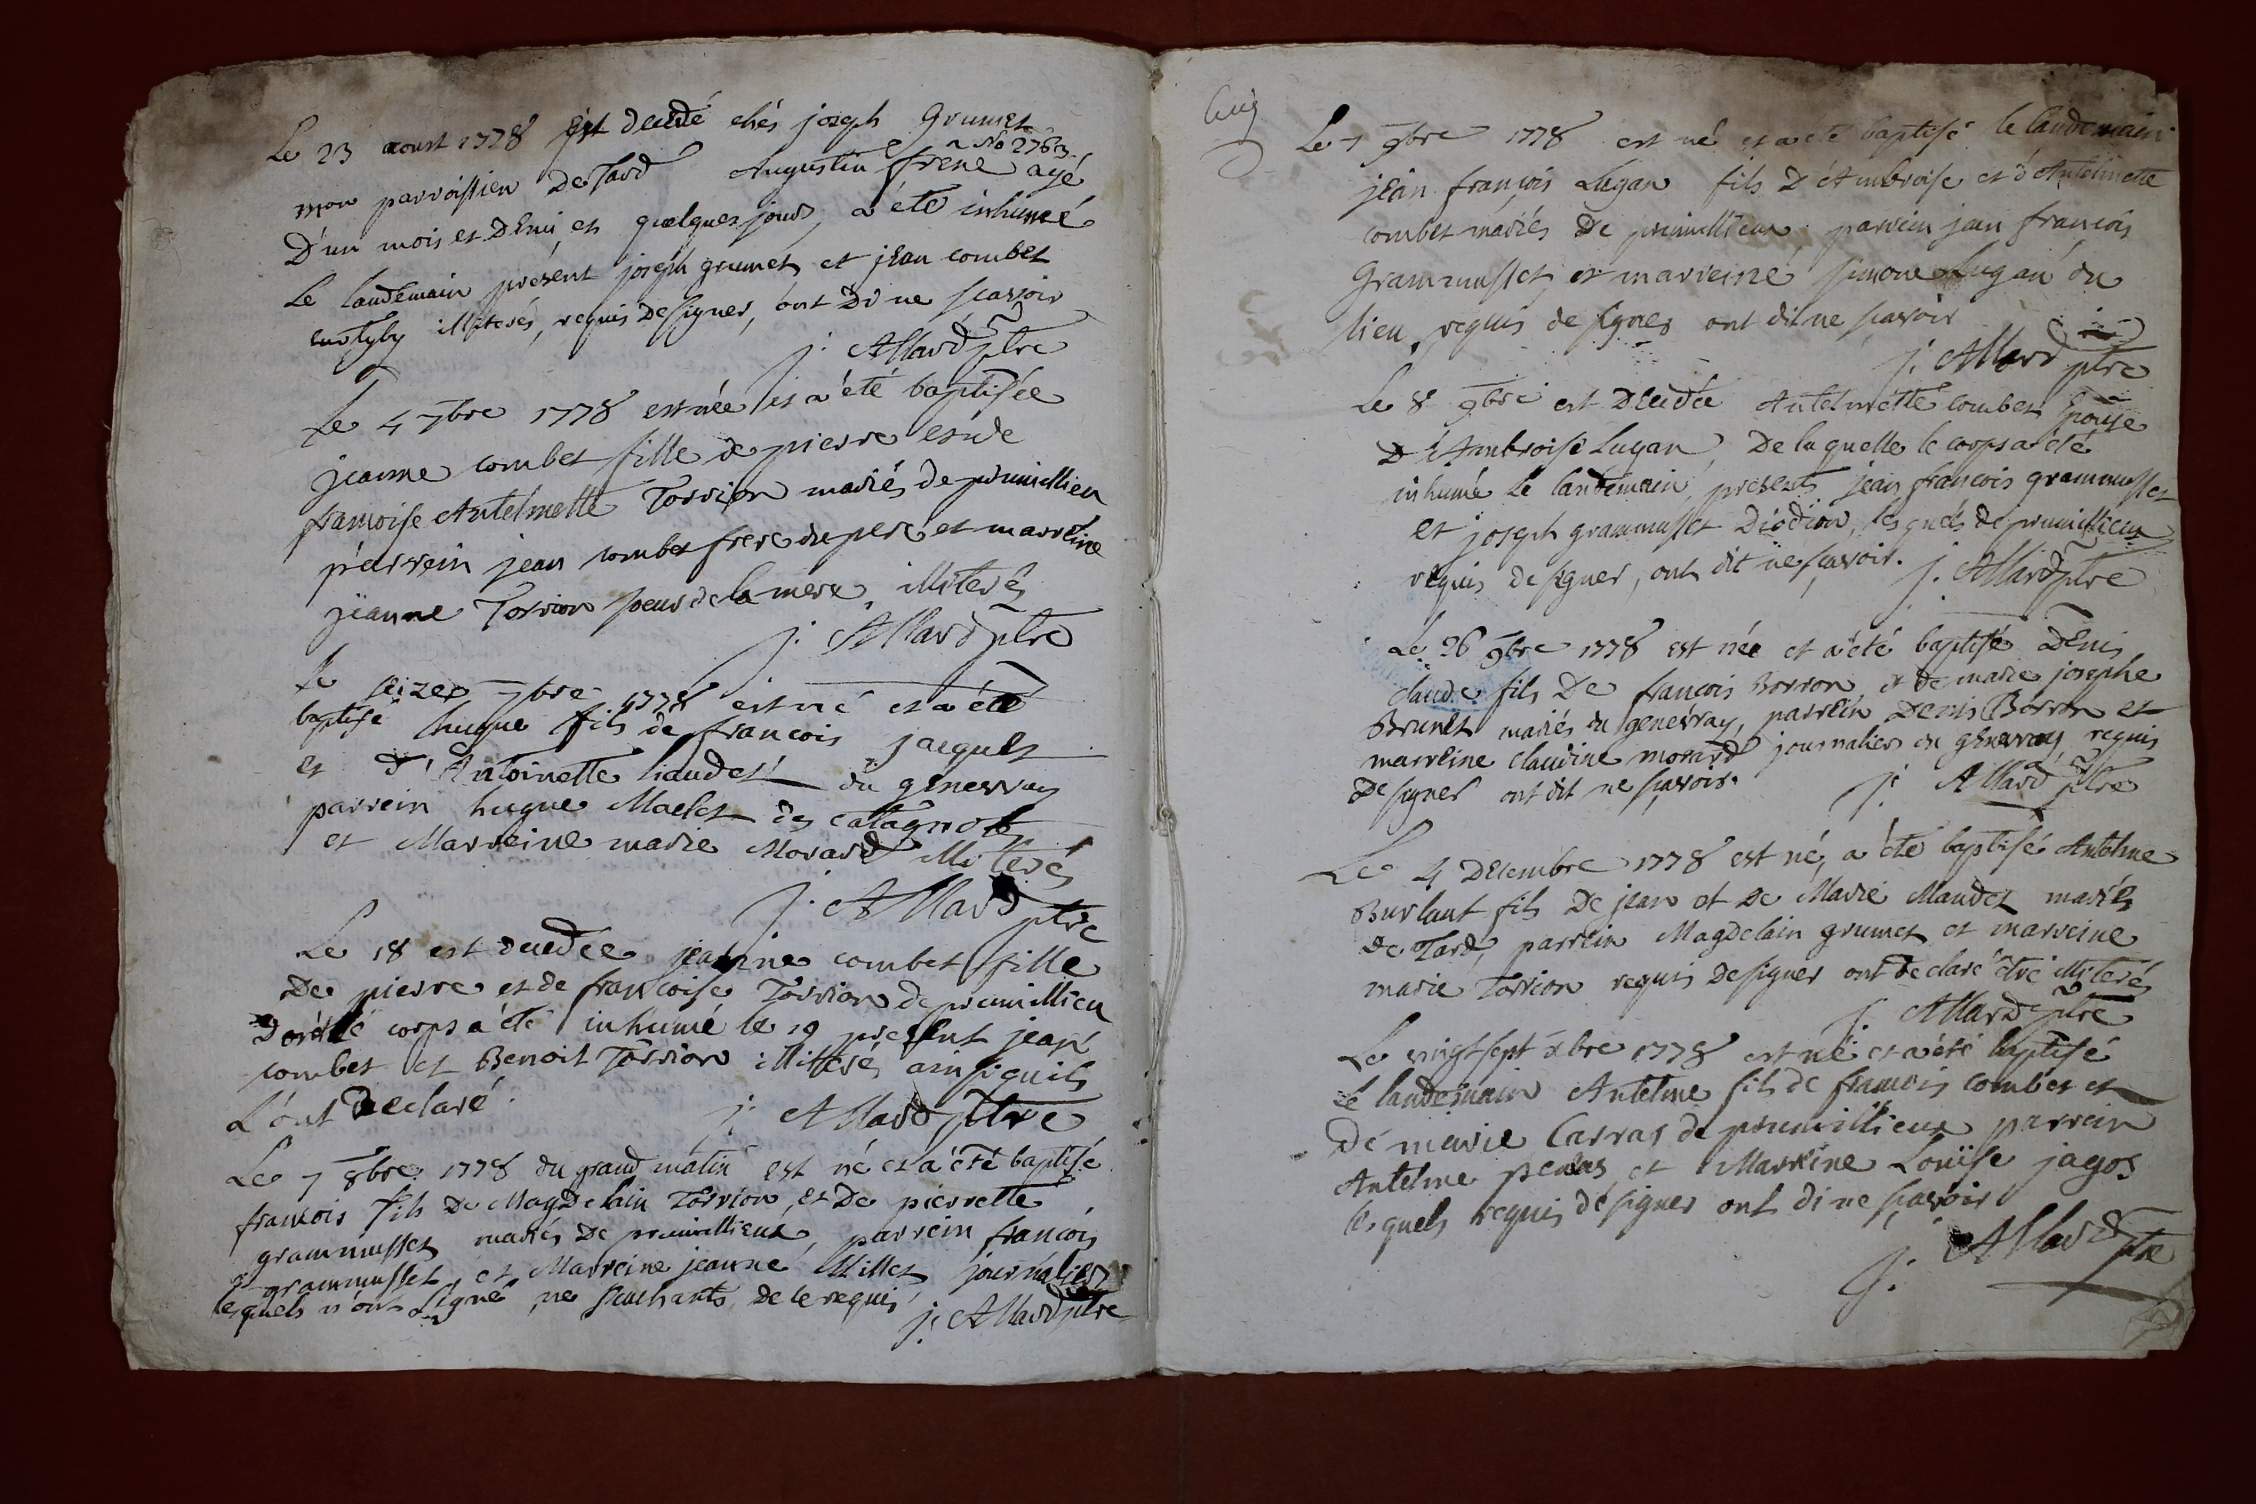 Le 23 aoust 1778 est decedé chés joseph Grumet
mon parroissien de Tard Augustin frene N° 2763 agé
D'un mois et Demi et quelques jours, a été inhumé
Le landemain présent joseph grumet et jean combet
illiterés, requis de signer, ont Di ne scavoir
j: Allard ptre
Le 4 7bre 1778 est née et a été baptisée
jeanne combet fille de pierre et de
francoise Antelmette Torrion mariés de prumillieu
parrein jean combet frere du pere et marreine
jeanne Torrion soeur de la mere illiterés
j: Allard ptre
Le seize 7bre 1778 est né et a été
baptisé hugue fils de francois jacquet
et d'Antoinette liaudet du genevray
parrein hugue Maclet des catagnolet
et Marreine marie Morard illiterés
j: Allard ptre
Le 18 est decedée jeanne combet fille
De pierre et de francoise Torrion de prumillieu
Dont le corps a été inhumé le 19 present jean
combet et Benoit Torrion illitterés ainsi quils
L'ont Declaré.
j: Allard ptre
Le 7 8bre 1778 du grand matin est né et a été baptisé
francois fils de Magdelain Torrion, et De pierrette
grammusset mariés De prumillieux, parrein francois
grammusset, et Marreine jeanne Millet journaliers
lesquels n'ont signé ne scachants de ce requis
j: Allard ptre
Le 7 9bre 1778 est né et a été baptisé le landemain
jean françois Lugan fils D'Ambroise et d'Antelmette
combet mariés De prumillieux parrein jean francois
Grammusset et marreine simone Lugan du
lieu, requis de signer ont dit ne scavoir
j: Allard ptre
Le 8 9bre est Decedée Antelmette combet Epouse
D'Ambroise Lugan, De laquelle le corps a été
inhumé Le landemain, présents jean francois grammusset
et joseph grammusset Diodion, lesquels de prumillieux
requis de signer, ont dit ne scavoir. j: Allard ptre
Le 26 9bre 1778 est née et a été baptisé Denis
claude fils De francois Borron, et de marie josephe
Brunet mariés du genevray, parrein Denis Borron et
marreine claudine morard journaliers du genevray requis
De signer ont dit ne scavoir.
j: Allard ptre
Le 4 Decembre 1778 est né, a été baptisé Antelme
Burlant fils De jean et De Marie Maudet mariés
de Tard, parrein Magdelain grumet et marreine
marie Torrion requis De signer ont declaré être illiterés
j: Allard ptre
Le vingt sept xbre 1778 est né et a été baptisé
le landemain Antelme fils de francois combet et
De marie Carras de prumillieux parrein
Antelme et Marreine Loüise jagot
lesquels requis de signer ont di ne scavoir
j: Allard ptre